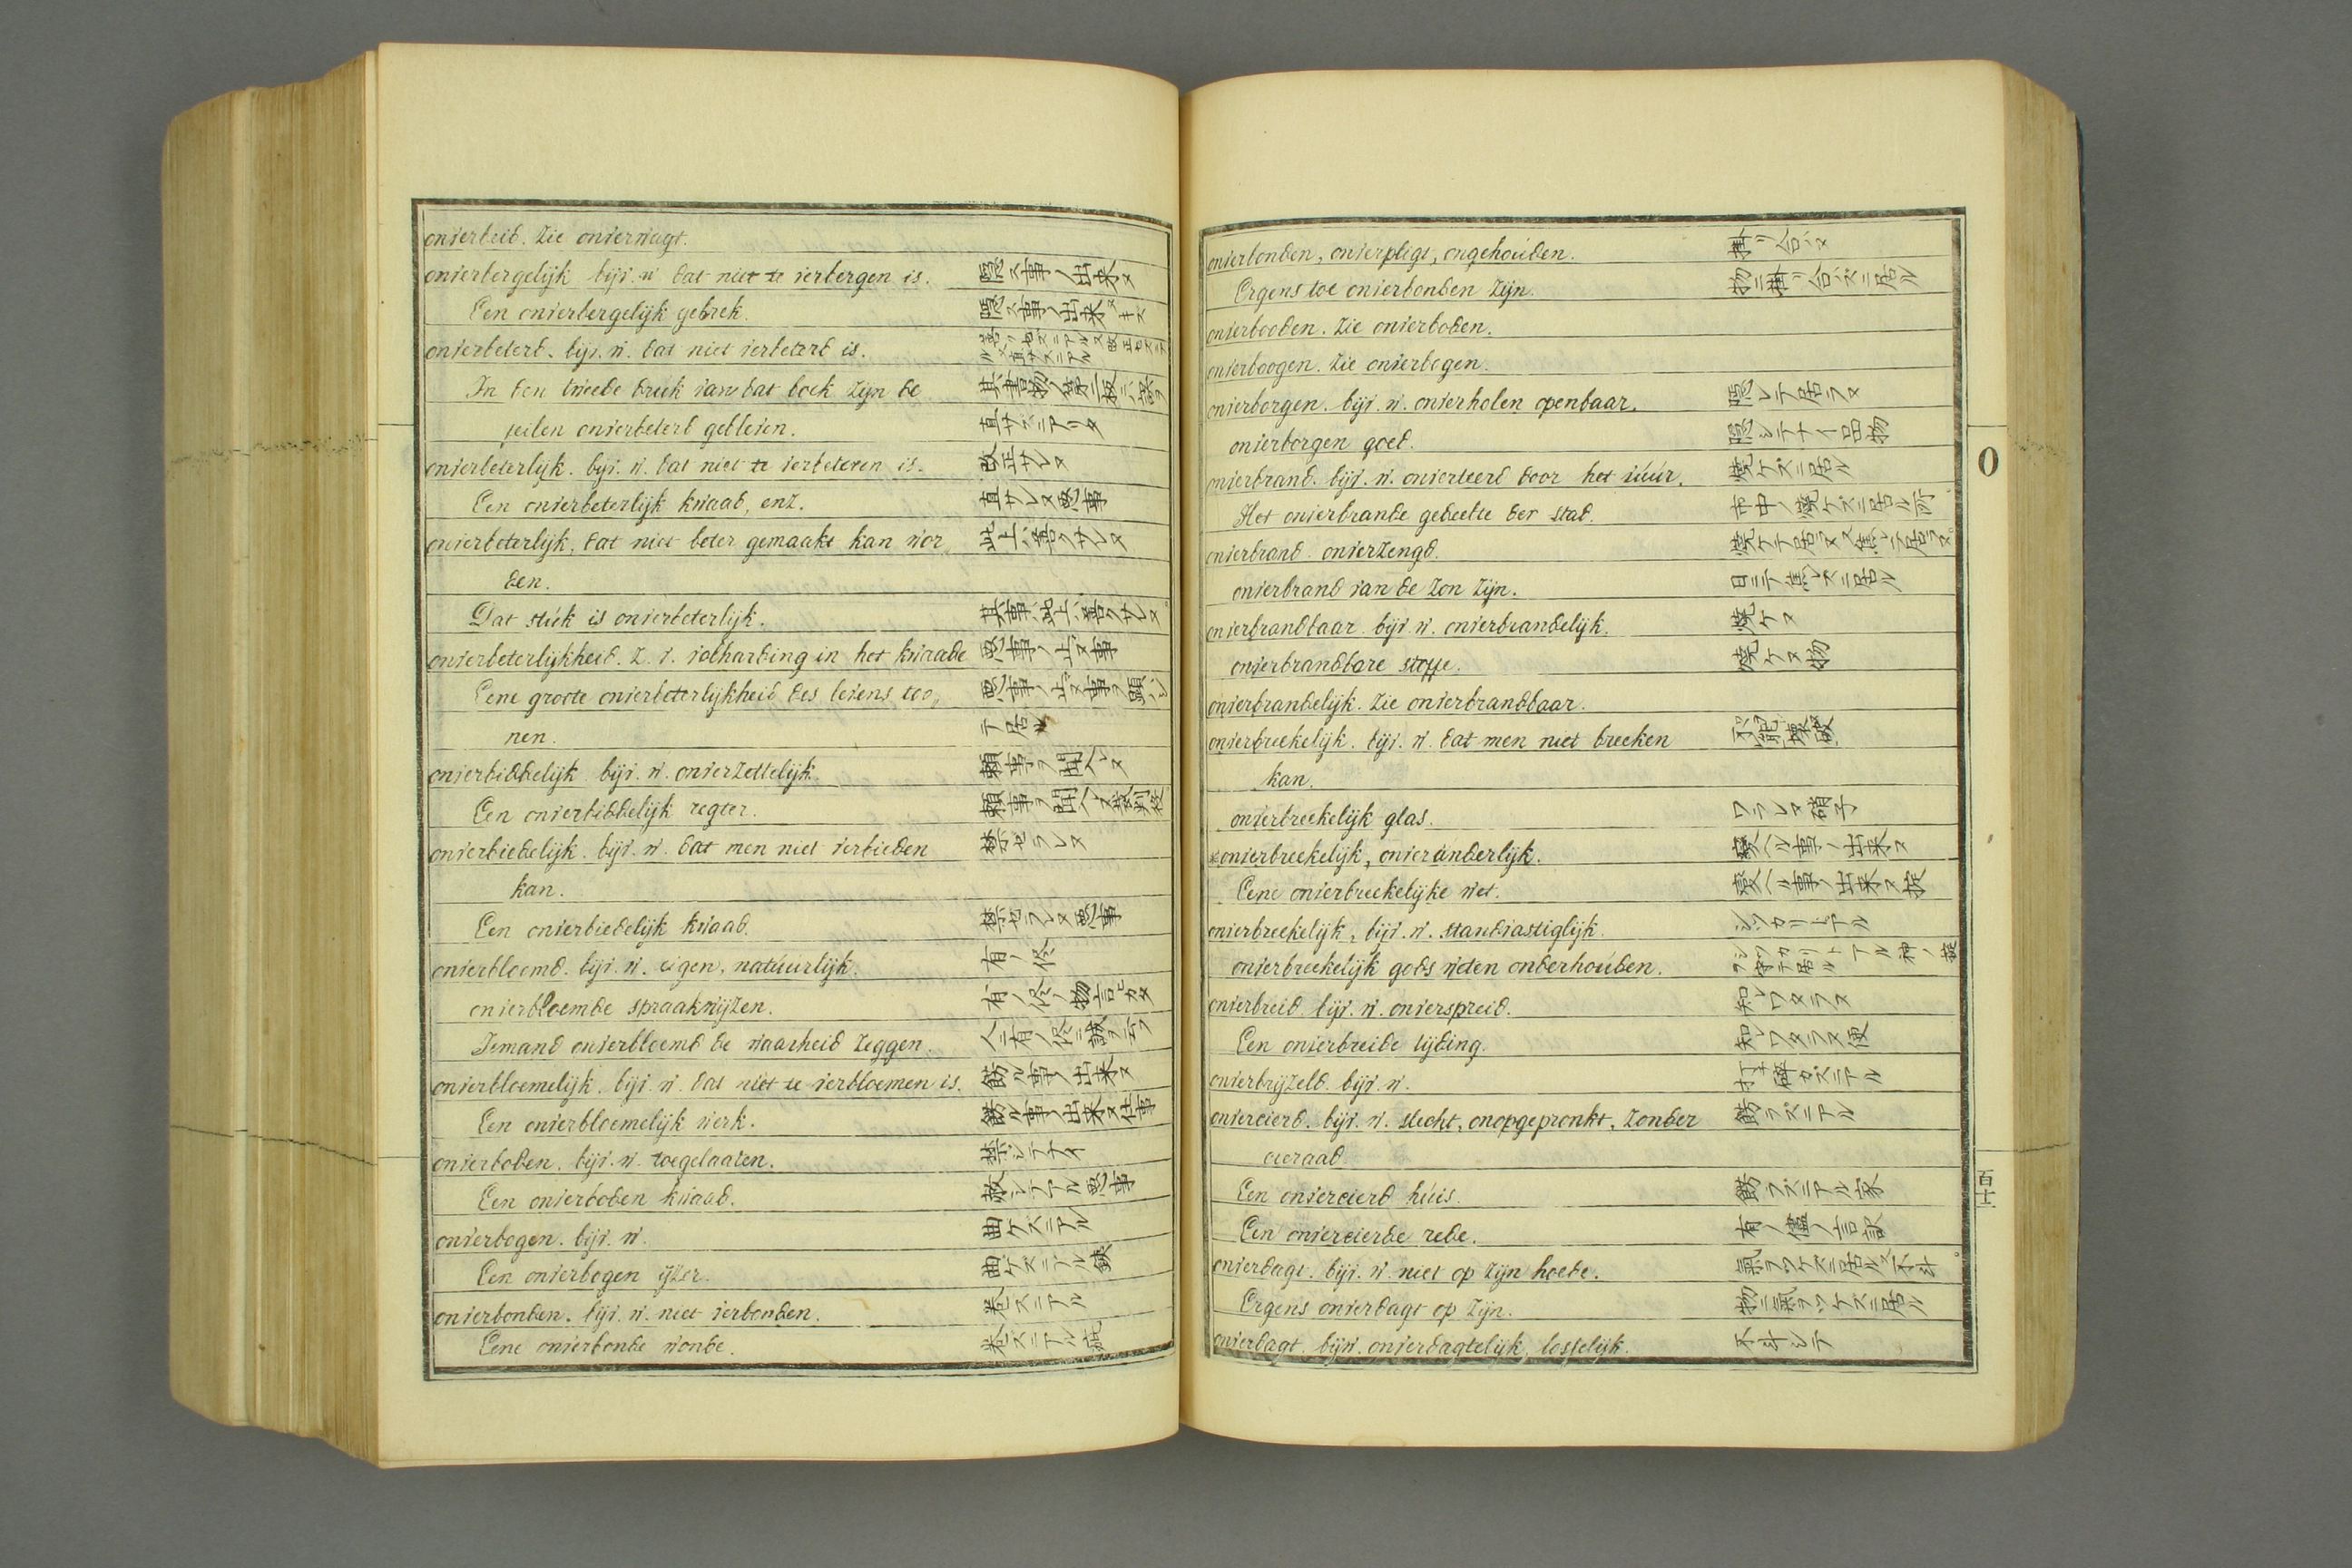 onverbeid. Zie onverwagt.
onverbergelijk bijv. w. dat niet te verbergen is. 隠ス事ノ出来ヌ
Een onverbergelijk gebrek. 隠ス事ノ出来ヌキズ
onverbeterd. bijv. w. dat niet verbeterd is.
In den tweede druk van dat boek zijn de
feilen onverbeterd gebleven. 直サズニアリタ
onverbeterlijk. bijv. w. dat niet te verbeteren is. 改正サレヌ
Een onverbeterlijk kwaad, enz. 直サレヌ悪事
onverbeterlijk, dat niet beter gemaakt kan wor 此上ニ善クサレヌ
den.
Dat stúk is onverbeterlijk. 其事ハ此上ニ善クサレヌ
onverbeterlijkheid. z. v. volharding in het kwaade 悪事ノ止ヌ事
Eene groote onverbeterlijkheid des levens too, 悪事ノ止ヌ事ヲ顕シ
nen. テ居ル
onverbiddelijk bijv. w. onverzettelijk. 頼事ヲ聞入レヌ
Een onverbiddelijk regter.
onverbiedelijk. bijv. w. dat men niet verbieden 禁セラレヌ
kan.
Een onverbiedelijk kwaad. 禁セラレヌ悪事
onverbloemd. bijv. w. eigen, natúurlijk. 有ノ侭
onverbloemde spraakwijzen. 有ノ侭ノ物言ヒカタ
Iemand onverbloemd de waarheid zeggen. 人ニ有ノ侭ニ誠ヲ云フ
onverbloemelijk. bijv. w. dat niet te verbloemen is. 餝ル事ノ出来ヌ
Een onverbloemelijk werk. 餝ル事ノ出来ヌ仕事
onverboden. bijv. w. toegelaaten. 禁シテナイ
Een onverboden kwaad. 赦シテアル悪事
onverbogen. bijv. w. 曲ケズニアル
Een onverbogen ijzer. 曲ケズニアル鉄
onverbonden. bijv. w. niet verbonden. 巻ズニアル
Eene onverbonde wonde. 巻ズニアル疵
onverbonden, onverpligt, ongehoúden. 掛リ合ハヌ
Ergens toe onverbonden zijn. 物ニ掛リ合ハズニ居ル
onverbooden. Zie onverboden.
onverboogen. Zie onverbogen.
onverborgen. bijv. w. onverholen openbaar. 隠レテ居ラヌ
onverborgen goed. 隠シテナイ品物
onverbrand. bijv. w. onverteerd door het vúúr. 焼ケズニ居ル
Het onverbrande gedeelte der stad. 市中ノ焼ケズニ居ル所
onverbrand. onverzengd. 焼ケテ居ラヌ又焦レテ居ラヌ
onverbrand van de zon zijn. 日ニテ焦レズニ居ル
onverbrandbaar. bijv. w. onverbrandelijk. 焼ケヌ
onverbrandbare stoffe. 焼ケヌ物
onverbrandelijk. Zie onverbrandbaar.
onverbreekelijk. bijv. w. dat men niet breeken 不能壊破
kan.
onverbreekelijk glas. ワラレヌ硝子
*onverbreekelijk, onveranderlijk. 変ヘル事ノ出来ヌ
Eene onverbreekelijke wet. 変ヘル事ノ出来ヌ掟
onverbreekelijk, bijv. w. standvastiglijk. シツカリトアル
onverbreekelijk gods weten onderhoúden.
onverbreid. bijv. w. onverspreid. 知レワタラヌ
Een onverbreide tijding. 知レワタラヌ便
onverbrijzeld. bijv. w. 打碎カズニアル
onvercierd. bijv. w. slecht, onopgepronkt, zonder 餝ラズニアル
cieraad.
Een onvercierd húis. 餝ラズニアル家
Een onvercierde rede. 有ノ儘ノ言訳
onverdagt. bijv. w. niet op zijn hoede. 氣ヲツケズニ居ル又不斗
Ergens onverdagt op zijn. 物ニ氣ヲツケズニ居ル
onverdagt. bijw. onverdagtelijk, losselijk. 不斗シテ
O
百十